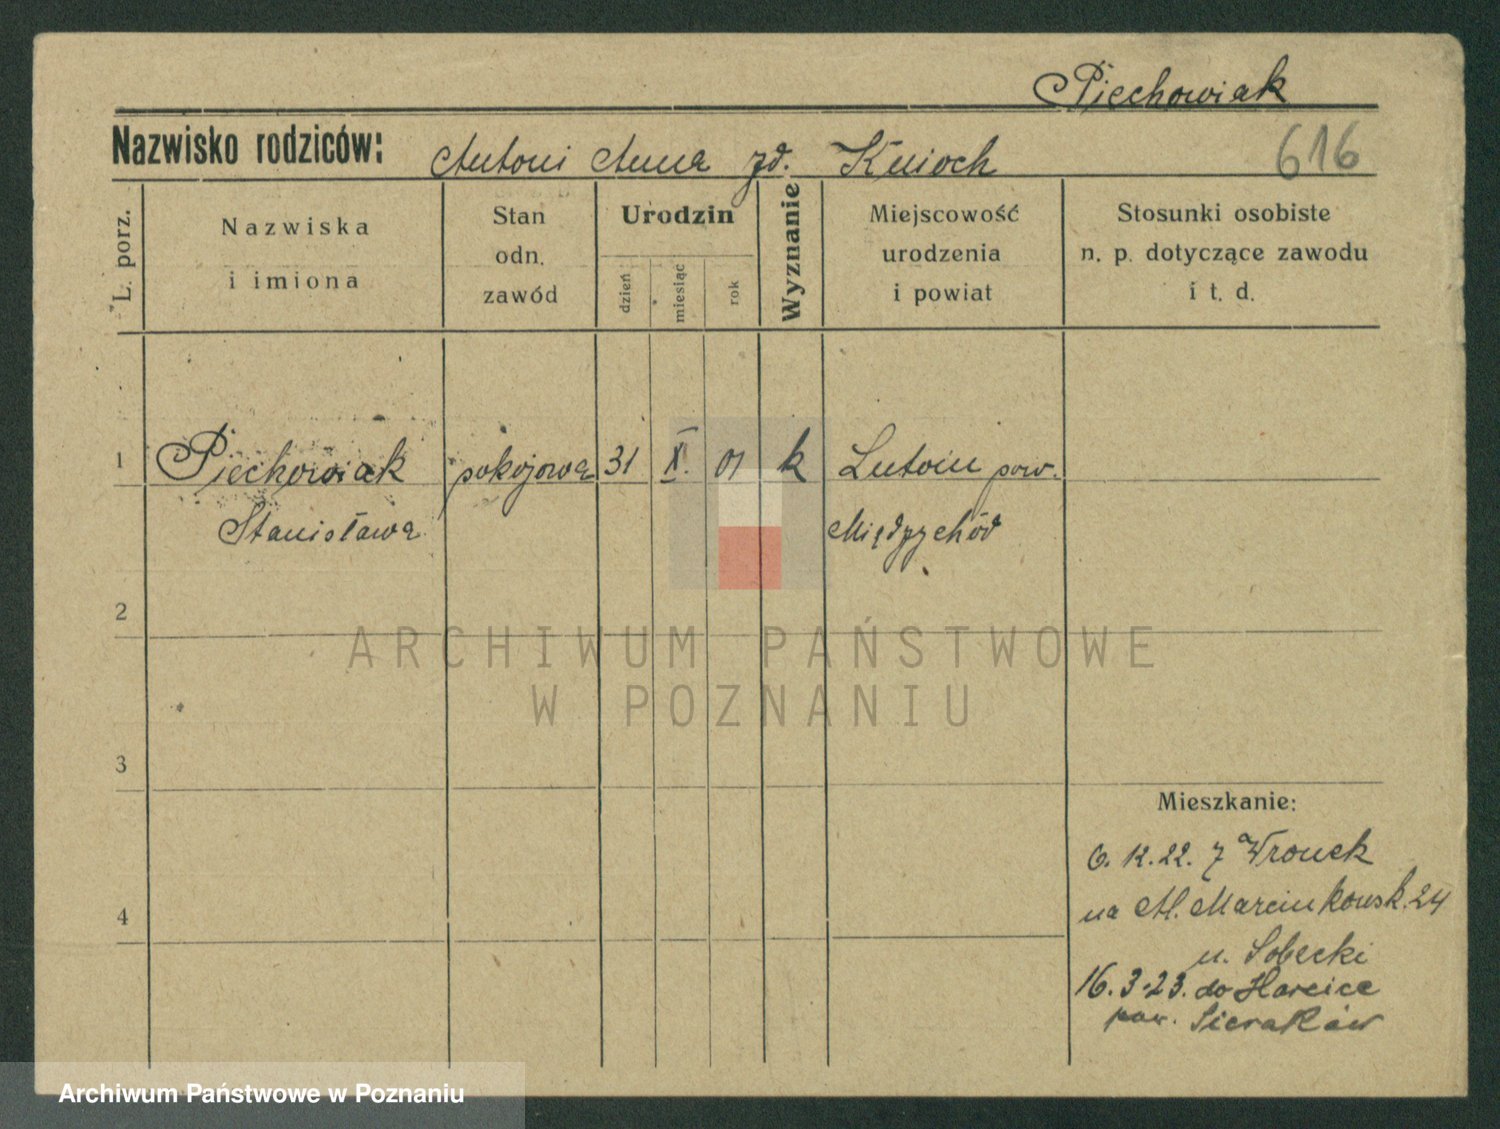 Piechowiak
Nazwisko rodziców: Antoni Anna zd. Knioch
616
L. porz.
Nazwiska
i imiona
Stan
odn.
zawód
Urodzin
dzień
miesiąc
rok
Wyznanie
Miejscowość
urodzenia
i powiat
Stosunki osobiste
n. p. dotyczące zawodu
i t. d.
1 Piechowiak pokojowa 31 X. 01 k Lutom pow.
Stanisława Międzychód
2
3
4
Mieszkanie:
6. 12. 22. z Wronek
na Al. Marcinkowsk. 24
u. Sobecki
16. 3-23. do
pow. Sieraków
ARCHIWUM PAŃSTWOWE
W POZNANIU
Archiwum Państwowe w Poznaniu